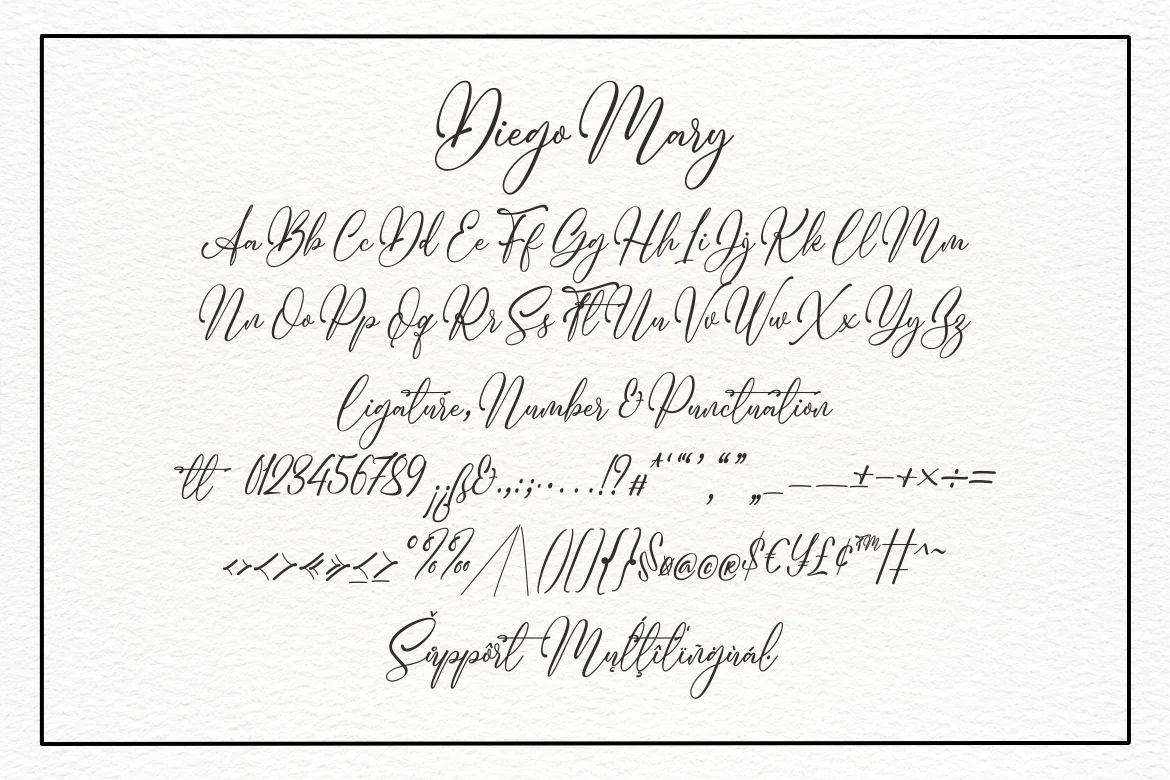 Diego Mary
Aa Bb Cc Dd Ee Ff Gg Hh Ii Jj Kk Ll Mm
Nn Oo Pp Qq Rr Ss Tt Uu Vv Ww Xx Yy Zz
Ligature, Number & Punctuation
tt 0123456789 ¡¿ß&.,:;·•…!?#*'"‘’‚“”„_-–—±−+×÷=
‹›<>«»≤≥°%‰/\()[]{}§¤@©®$€¥£¢™|¦^~
Šůppôřt Mųĺţîlïñğùál.